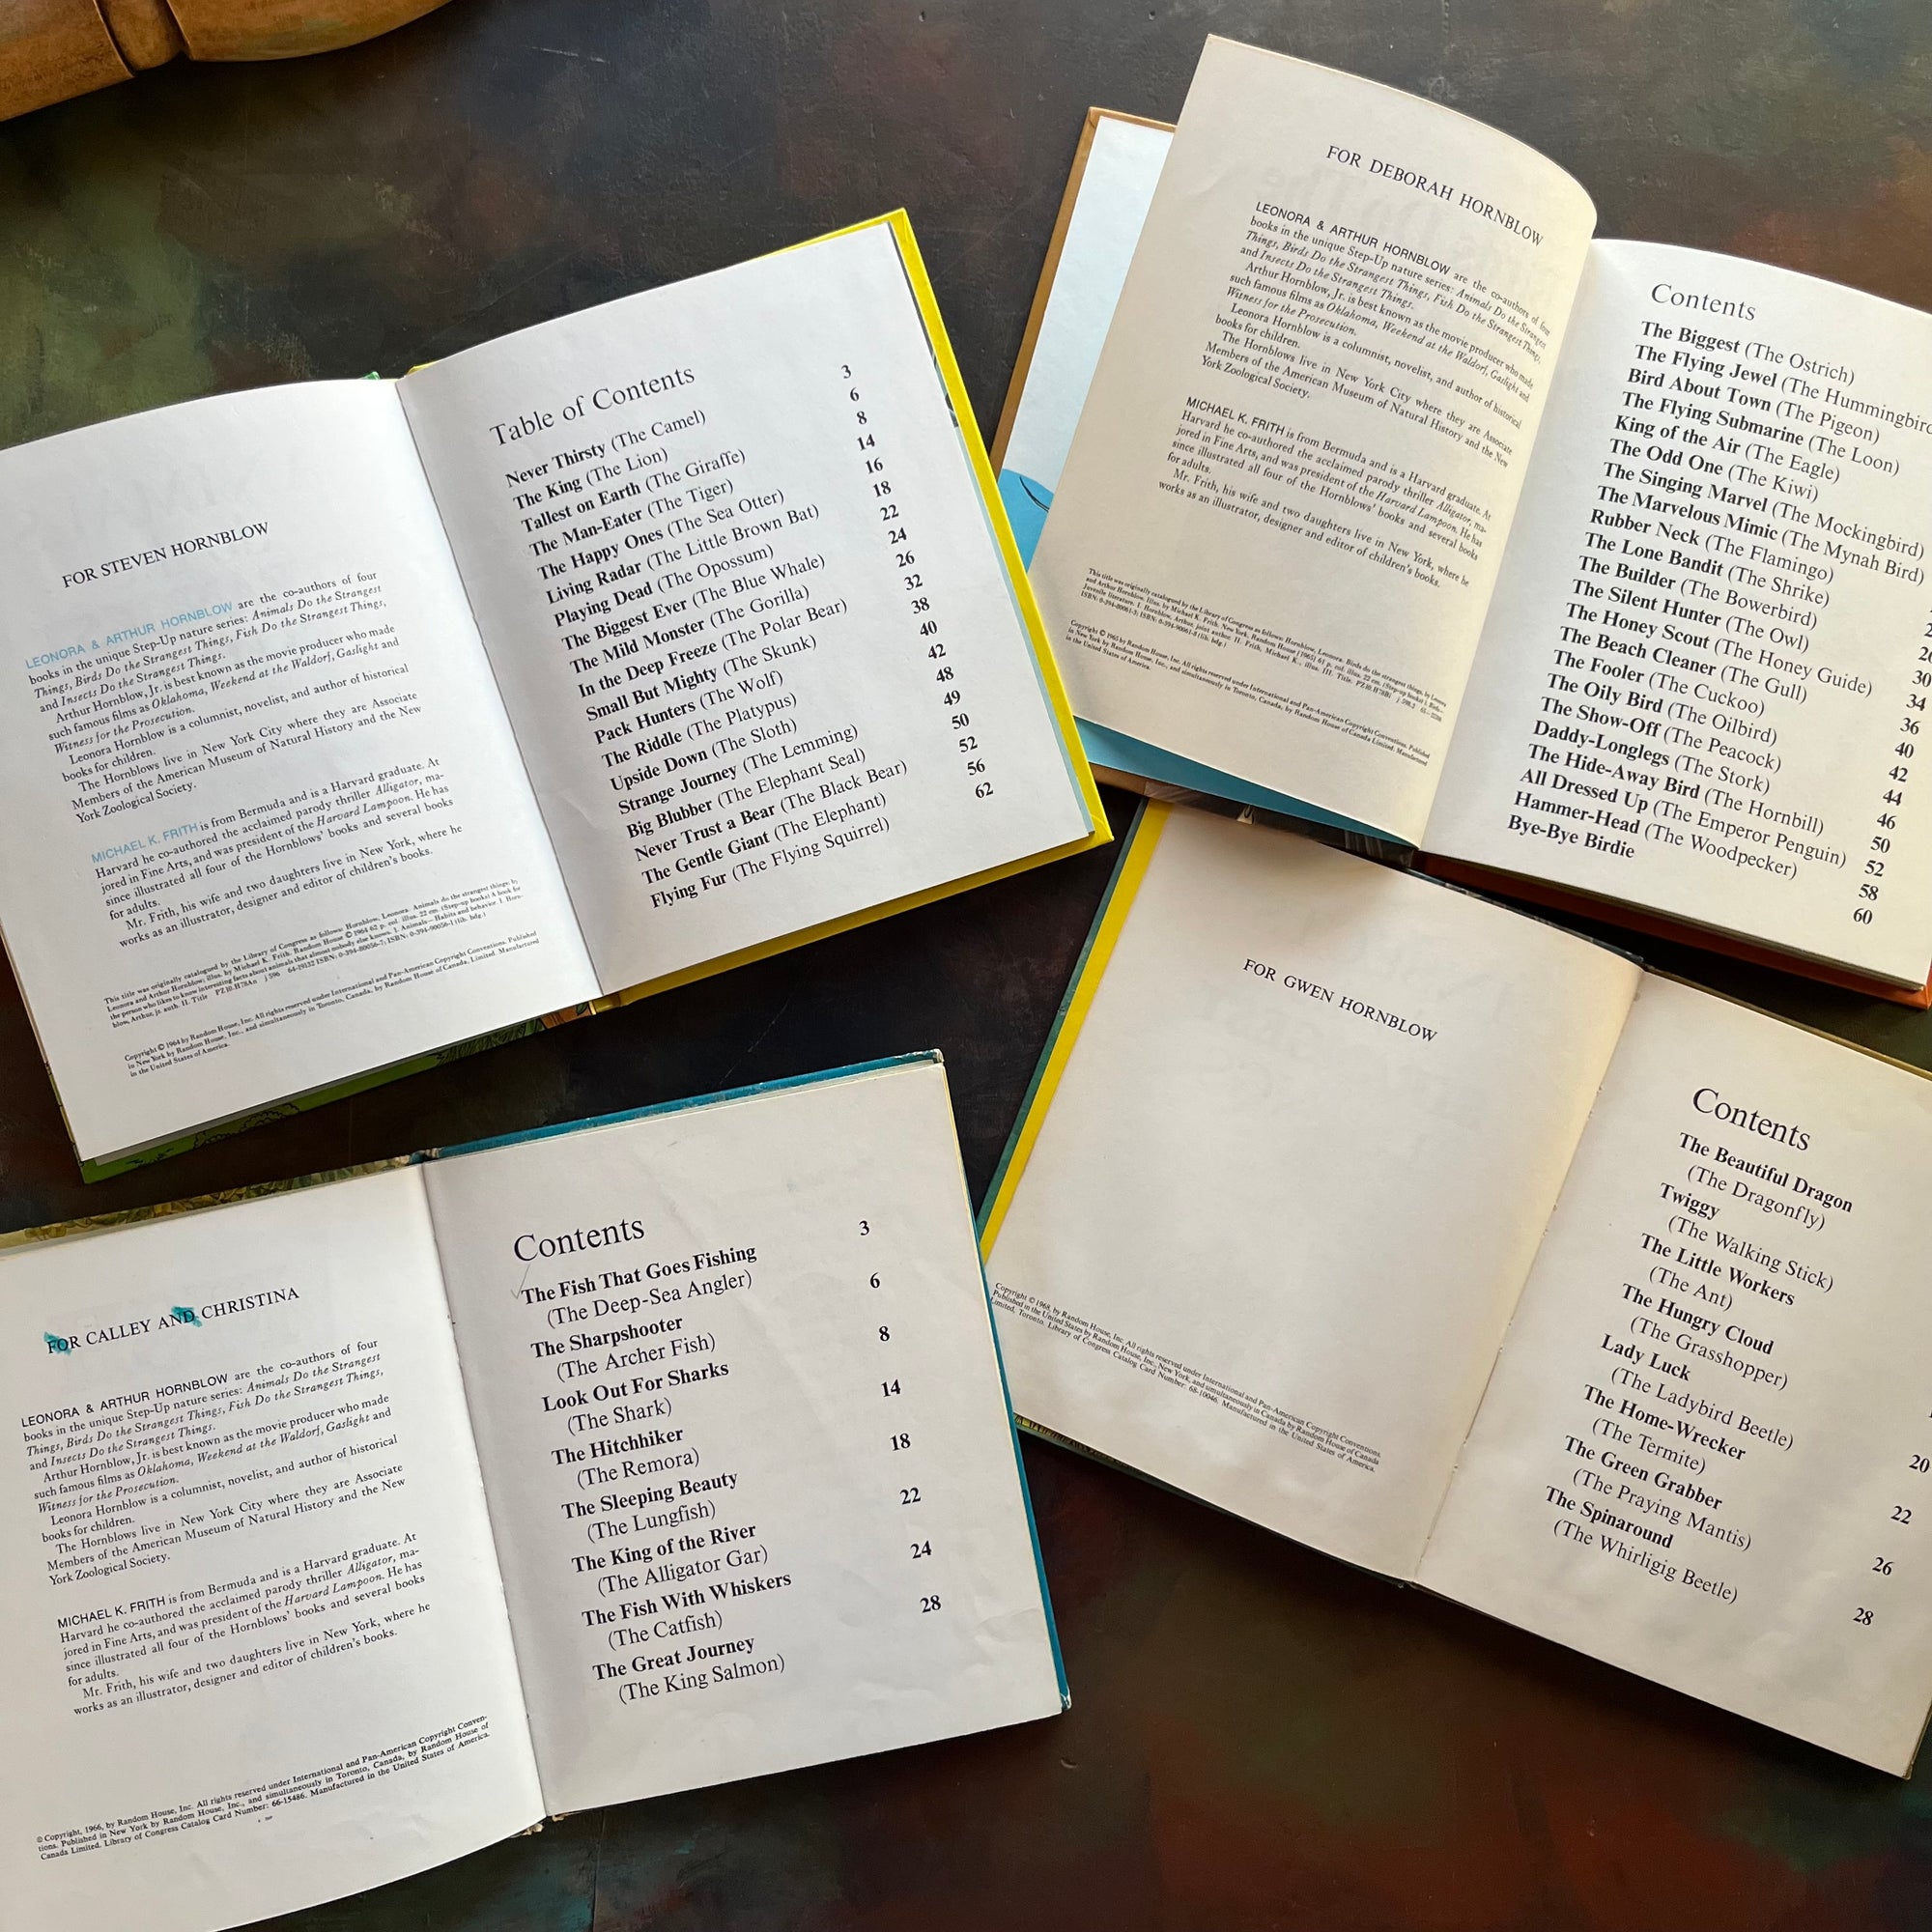 FOR STEVEN HORNBLOW
LEONORA & ARTHUR HORNBLOW are the co-authors of four
books in the unique Step-Up nature series: Animals Do the Strangest
Things, Birds Do the Strangest Things, Fish Do the Strangest Things,
and Insects Do the Strangest Things.
Arthur Hornblow, Jr. is best known as the movie producer who made
such famous films as Oklahoma, Weekend at the Waldorf, Gaslight and
Witness for the Prosecution.
Leonora Hornblow is a columnist, novelist, and author of historical
books for children.
The Hornblows live in New York City where they are Associate
Members of the American Museum of Natural History and the New
York Zoological Society.
MICHAEL K. FRITH is from Bermuda and is a Harvard graduate. At
Harvard he co-authored the acclaimed parody thriller Alligator, ma-
jored in Fine Arts, and was president of the Harvard Lampoon. He has
since illustrated all four of the Hornblows' books and several books
for adults.
Mr. Frith, his wife and two daughters live in New York, where he
works as an illustrator, designer and editor of children's books.
This title was originally catalogued by the Library of Congress as follows: Hornblow, Leonora. Animals do the strangest things; by
Leonora and Arthur Hornblow; illus. by Michael K. Frith. Random House © 1964 62 p. col. illus. 22 cm. (Step-up books) A book for
the person who likes to know interesting facts about animals that almost nobody else knows. 1. Animals—Habits and behavior I. Horn-
blow, Arthur, jr. auth. II. Title PZ10.H78An j 596 64-19132 ISBN: 0-394-80056-2; ISBN: 0-394-90056-1 (lib. bdg.)
Copyright © 1964 by Random House, Inc. All rights reserved under International and Pan-American Copyright Conventions. Published
in New York by Random House, Inc., and simultaneously in Toronto, Canada, by Random House of Canada, Limited. Manufactured
in the United States of America.
Table of Contents
Never Thirsty (The Camel) 3
The King (The Lion) 6
Tallest on Earth (The Giraffe) 8
The Man-Eater (The Tiger) 14
The Happy Ones (The Sea Otter) 16
Living Radar (The Little Brown Bat) 18
Playing Dead (The Opossum) 22
The Biggest Ever (The Blue Whale) 24
The Mild Monster (The Gorilla) 26
In the Deep Freeze (The Polar Bear) 32
Small But Mighty (The Skunk) 38
Pack Hunters (The Wolf) 40
The Riddle (The Platypus) 42
Upside Down (The Sloth) 48
Strange Journey (The Lemming) 49
Big Blubber (The Elephant Seal) 50
Never Trust a Bear (The Black Bear) 52
The Gentle Giant (The Elephant) 56
Flying Fur (The Flying Squirrel) 62
FOR DEBORAH HORNBLOW
LEONORA & ARTHUR HORNBLOW are the co-authors of four
books in the unique Step-Up nature series: Animals Do the Strangest
Things, Birds Do the Strangest Things, Fish Do the Strangest Things,
and Insects Do the Strangest Things.
Arthur Hornblow, Jr. is best known as the movie producer who made
such famous films as Oklahoma, Weekend at the Waldorf, Gaslight and
Witness for the Prosecution.
Leonora Hornblow is a columnist, novelist, and author of historical
books for children.
The Hornblows live in New York City where they are Associate
Members of the American Museum of Natural History and the New
York Zoological Society.
MICHAEL K. FRITH is from Bermuda and is a Harvard graduate. At
Harvard he co-authored the acclaimed parody thriller Alligator, ma-
jored in Fine Arts, and was president of the Harvard Lampoon. He has
since illustrated all four of the Hornblows' books and several books
for adults.
Mr. Frith, his wife and two daughters live in New York, where he
works as an illustrator, designer and editor of children's books.
This title was originally catalogued by the Library of Congress as follows: Hornblow, Leonora. Birds do the strangest things, by Leonora
and Arthur Hornblow. Illus. by Michael K. Frith. New York, Random House [1965] 61 p. col. illus. 22 cm. (Step-up books) 1. Birds—
Juvenile literature. I. Hornblow, Arthur, joint author. II. Frith, Michael K., illus. III. Title. PZ10.H78Bi
ISBN: 0-394-90061-8 (lib. bdg.)
Copyright © 1965 by Random House, Inc. All rights reserved under International and Pan-American Copyright Conventions. Published
in New York by Random House, Inc., and simultaneously in Toronto, Canada, by Random House of Canada Limited. Manufactured
in the United States of America.
Contents
The Biggest (The Ostrich)
The Flying Jewel (The Hummingbird
Bird About Town (The Pigeon)
The Flying Submarine (The Loon)
King of the Air (The Eagle)
The Odd One (The Kiwi)
The Singing Marvel (The Mockingbird)
The Marvelous Mimic (The Mynah Bird)
Rubber Neck (The Flamingo)
The Lone Bandit (The Shrike)
The Builder (The Bowerbird)
The Silent Hunter (The Owl)
The Honey Scout (The Honey Guide) 30
The Beach Cleaner (The Gull) 34
The Fooler (The Cuckoo) 36
The Oily Bird (The Oilbird) 40
The Show-Off (The Peacock) 42
Daddy-Longlegs (The Stork) 44
The Hide-Away Bird (The Hornbill) 46
All Dressed Up (The Emperor Penguin) 50
Hammer-Head (The Woodpecker) 52
Bye-Bye Birdie 58
60
FOR CALLEY AND CHRISTINA
LEONORA & ARTHUR HORNBLOW are the co-authors of four
books in the unique Step-Up nature series: Animals Do the Strangest
Things, Birds Do the Strangest Things, Fish Do the Strangest Things,
and Insects Do the Strangest Things.
Arthur Hornblow, Jr. is best known as the movie producer who made
such famous films as Oklahoma, Weekend at the Waldorf, Gaslight and
Witness for the Prosecution.
Leonora Hornblow is a columnist, novelist, and author of historical
books for children.
The Hornblows live in New York City where they are Associate
Members of the American Museum of Natural History and the New
York Zoological Society.
MICHAEL K. FRITH is from Bermuda and is a Harvard graduate. At
Harvard he co-authored the acclaimed parody thriller Alligator, ma-
jored in Fine Arts, and was president of the Harvard Lampoon. He has
since illustrated all four of the Hornblows' books and several books
for adults.
Mr. Frith, his wife and two daughters live in New York, where he
works as an illustrator, designer and editor of children's books.
© Copyright, 1966, by Random House, Inc. All rights reserved under International and Pan-American Copyright Conven-
tions. Published in New York by Random House, Inc., and simultaneously in Toronto, Canada, by Random House of
Canada Limited. Library of Congress Catalog Card Number: 66-15486. Manufactured in the United States of America.
Contents
The Fish That Goes Fishing 3
(The Deep-Sea Angler)
The Sharpshooter 6
(The Archer Fish)
Look Out For Sharks 8
(The Shark)
The Hitchhiker 14
(The Remora)
The Sleeping Beauty 18
(The Lungfish)
The King of the River 22
(The Alligator Gar)
The Fish With Whiskers 24
(The Catfish)
The Great Journey 28
(The King Salmon)
FOR GWEN HORNBLOW
Copyright © 1968, by Random House, Inc. All rights reserved under International and Pan-American Copyright Conventions.
Published in the United States by Random House, Inc., New York, and simultaneously in Canada by Random House of Canada
Limited, Toronto. Library of Congress Catalog Card Number: 68-10046. Manufactured in the United States of America.
Contents
The Beautiful Dragon
(The Dragonfly)
Twiggy
(The Walking Stick)
The Little Workers
(The Ant)
The Hungry Cloud
(The Grasshopper)
Lady Luck
(The Ladybird Beetle)
The Home-Wrecker 20
(The Termite)
The Green Grabber 22
(The Praying Mantis)
The Spinaround 26
(The Whirligig Beetle)
28